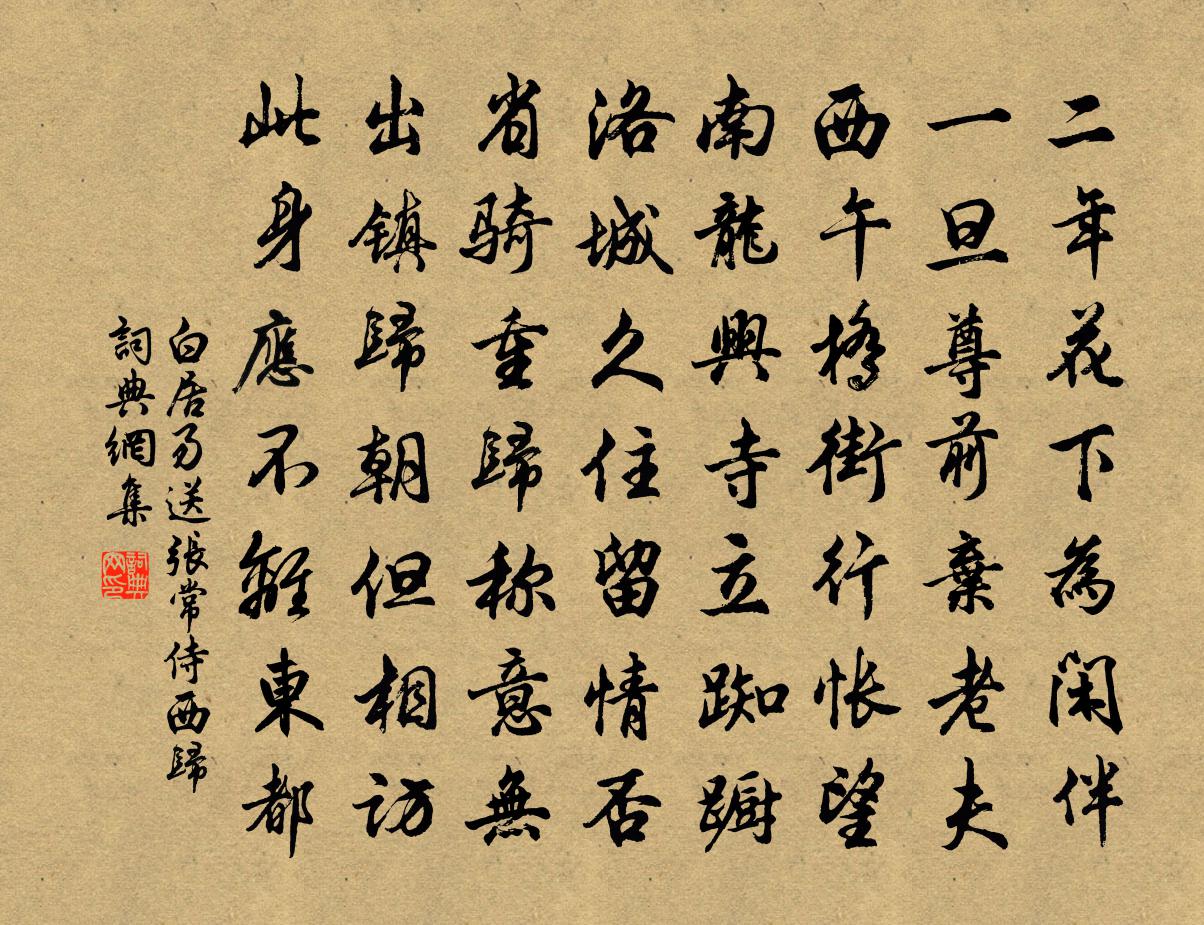 二年花下為閑伴
一旦尊前棄老夫
西午橋街行悵望
南龍興寺立踟躕
洛城久住留情否
省騎重歸称意無
出镇歸朝但相訪
此身應不離東都
白居易送張常侍西歸
詞典網集
詞典网印